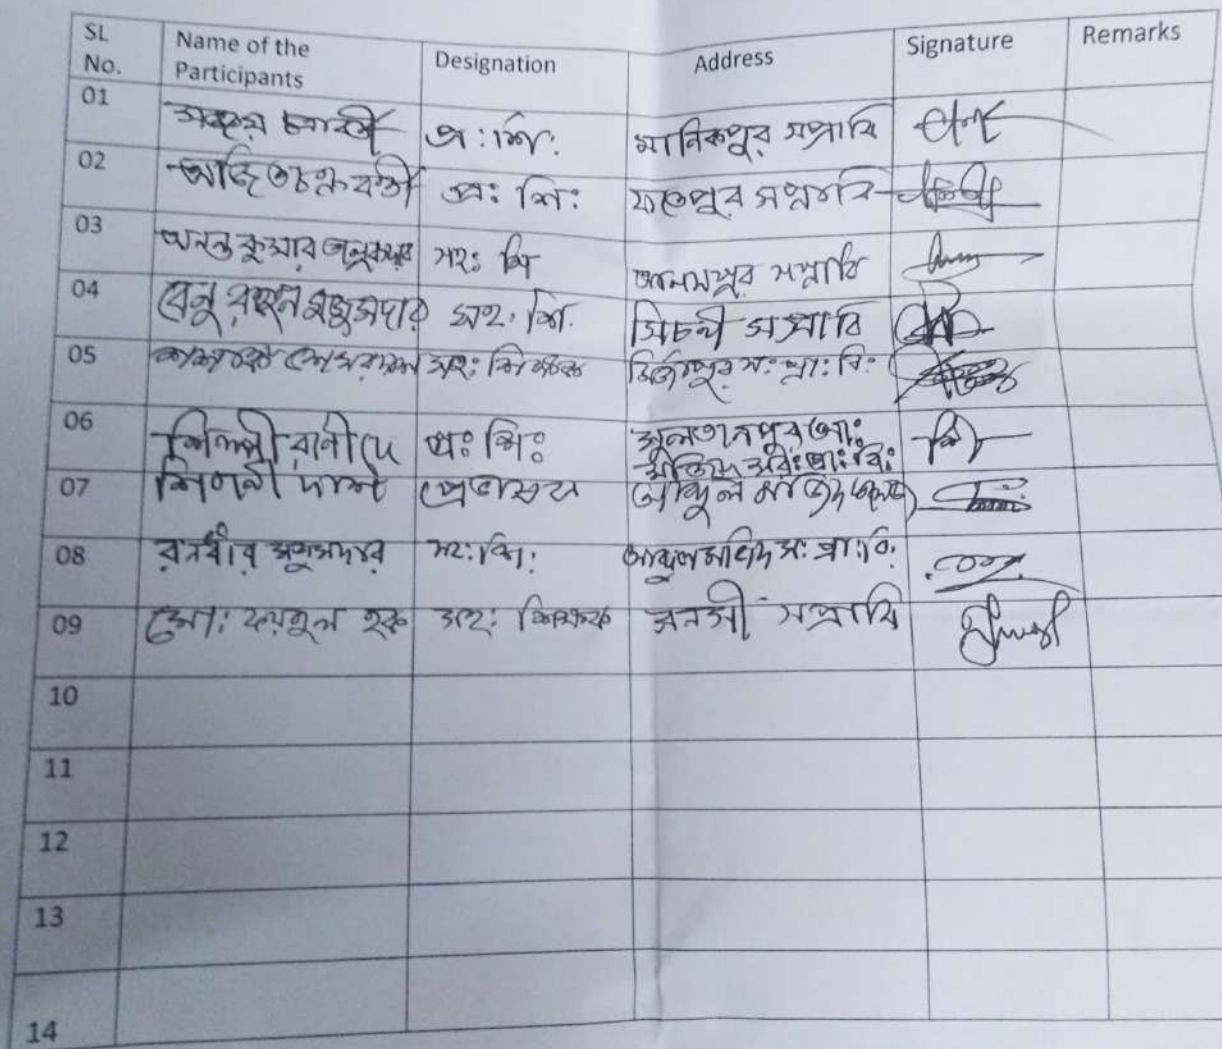 SL No. Name of the Participants Designation Address Signature Remarks
01 প্র:শি: মানিকপুর সপ্রাবি
02 অজিত চক্রবর্তী প্রঃ শিঃ ফতেপুর সপ্রাবি
03 অনন্ত কুমার তালুকদার সহঃ শি সপ্রাবি
04 বেনু রঞ্জন মজুমদার সহ. শি. সিচনী সপ্রাবি
05 সহঃ শিক্ষক মির্জাপুর সঃ প্রাঃ বিঃ
06 শিল্পী রানী দে প্রঃ শিঃ সুলতানপুর আঃ
মজিদ সরঃ প্রাঃ বিঃ
07 শিবানী দাশ প্রভাষক আব্দুল মজিদ কলেজ
08 রনধীর মজুমদার সহ:শি: আব্দুল মজিদ স: প্রা:বি:
09 মো: ফয়জুল হক সহ: শিক্ষক সপ্রাবি
10
11
12
13
14